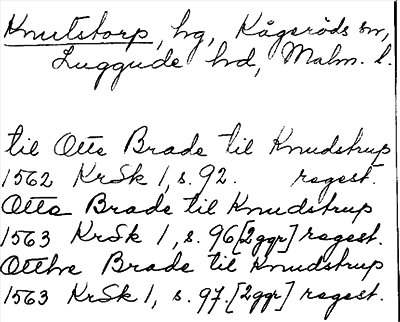 Knutstorp, hg, Kågeröds sn,
Luggude hd, Malm. l.
til Otte Brade til Knudstrup
1562 KrSk 1, s. 92. regest.
Otto Brade til Knudstrup
1563 KrSk 1, s. 96 [2ggr] regest.
Otthe Brade til Knudstrup
1563 KrSk 1, s. 97. [2ggr] regest.